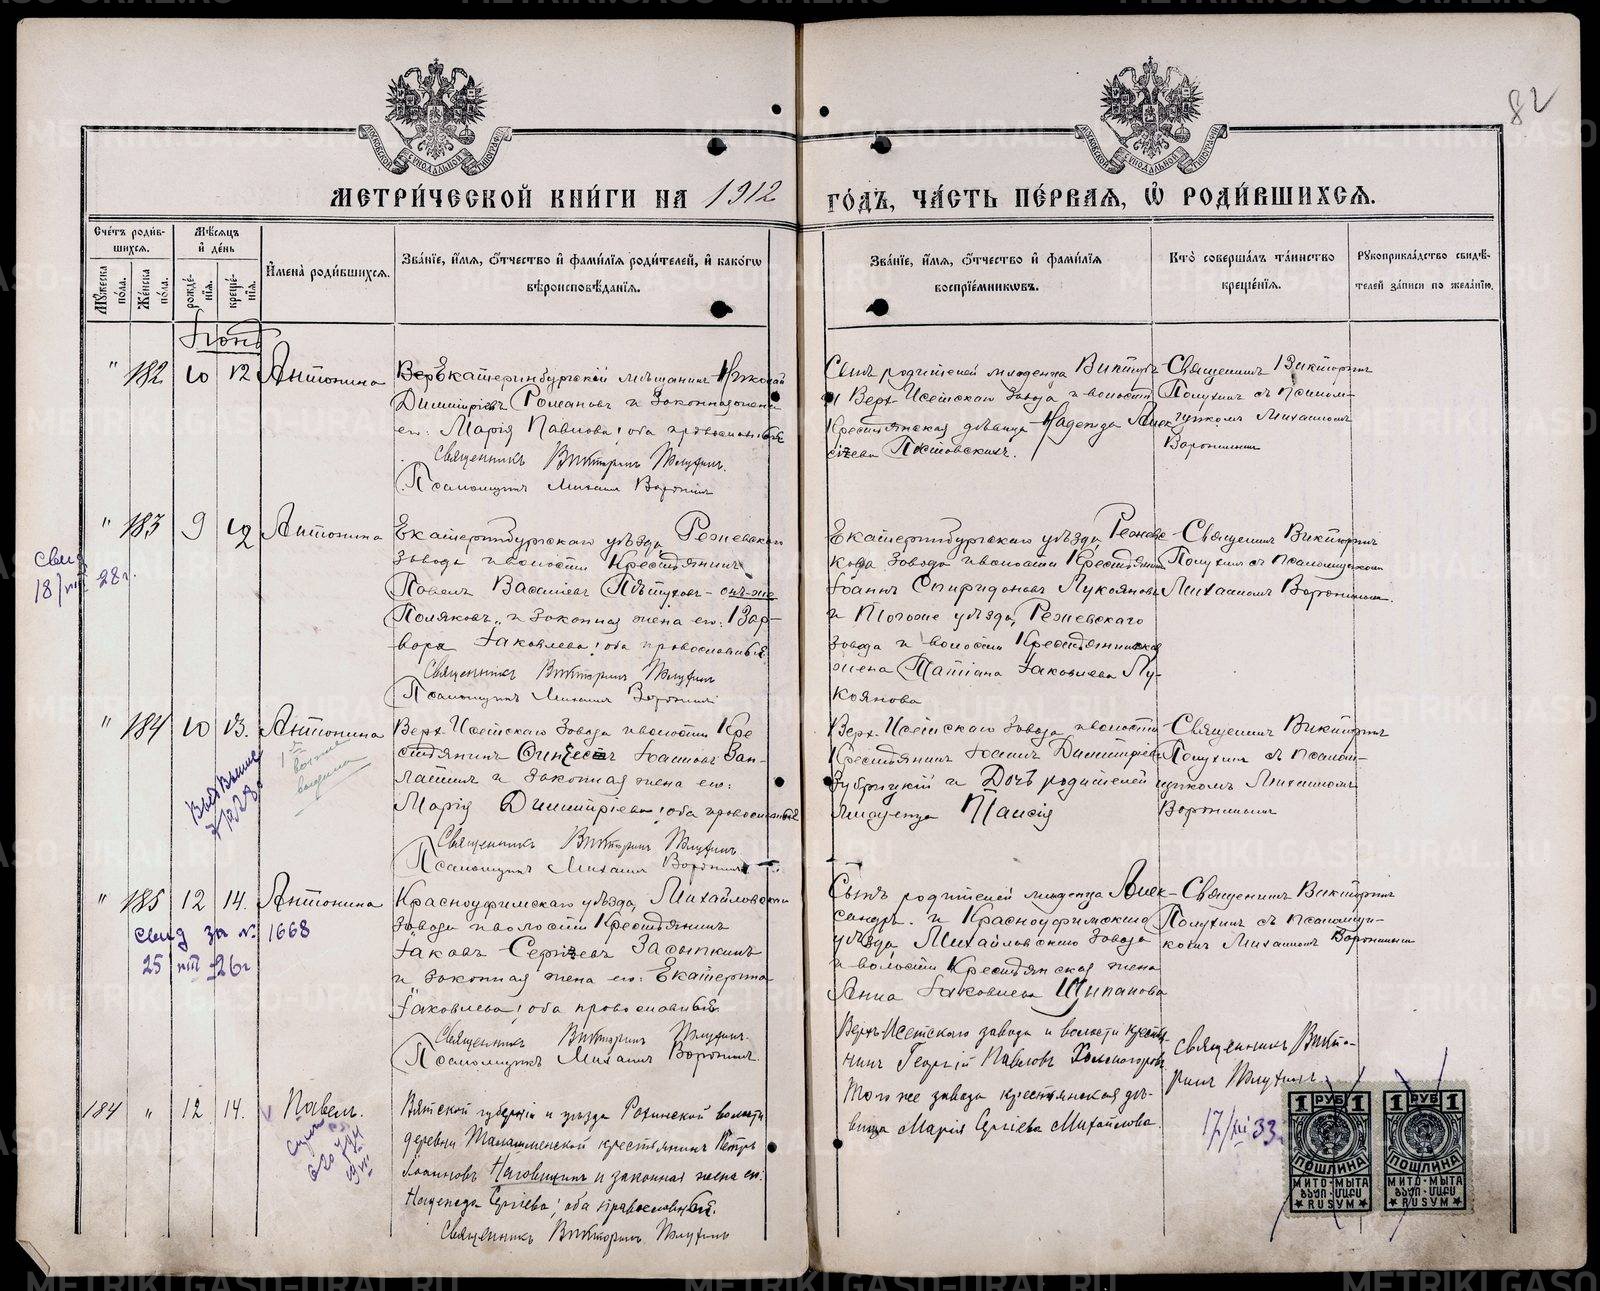 82
МЕТРИ́ЧЕСКОЙ КНИ́ГИ НА 1912
ГО́ДЪ, ЧА́СТЬ ПЕ́РВАѦ, Ѽ РОДИ́ВШИХСѦ.
Счетъ родив-
шихсѧ.
Мꙋжеска пола.
Женска пола.
Мѣсѧцъ
и день
рожде-
нїѧ.
креще-
нїѧ.
Имена родившихсѧ.
Званїе, имѧ, ѻтчество и фамилїѧ родителей, и какогѡ
вѣроисповѣданїѧ.
Званїе, имѧ, ѻтчество и фамилїѧ
воспрїемникѡвъ.
Кто совершалъ таинство
крещенїѧ.
Рꙋкоприкладство свидѣ-
телей записи по желанїю.
Іюнь
" 182 10 12 Антонина
Екатеринбургскій мѣщанинъ Николай
Димитріевъ Романовъ и законная жена
его: Марія Павлова; оба православные
Священникъ Викторинъ
Псаломщикъ Михаилъ Воронинъ
Сынъ родителей младенца Викторъ
и Верх-Исетскаго завода и волости
крестьянская дѣвица Надежда Алек
сіева Постовскихъ.
Священникъ Викторинъ
съ псалом-
щикомъ Михаиломъ
Воронинымъ
" 183 9 12 Антонина
Свид
18/VIII 28 г.
Екатеринбургскаго уѣзда, Режевскаго
завода и волости крестьянинъ
Павелъ Василіевъ Пѣтуховъ - онъ-же
Поляковъ, и законная жена его: Вар-
вара Іаковлева; оба православные
Священникъ Викторинъ
Псаломщикъ Михаилъ Воронинъ
Екатеринбургскаго уѣзда, Режевс-
каго завода и волости крестьянинъ
Іоаннъ Спиридоновъ Лукояновъ
и того же уѣзда, Режевскаго
завода и волости крестьянская
жена Татіана Іаковлева Лу-
коянова
Священникъ Викторинъ
съ псаломщикомъ
Михаиломъ Воронинымъ.
" 184 10 13. Антонина
Верх-Исетскаго завода и волости кре
стьянинъ Іоанновъ Зап-
латинъ и законная жена его:
Марія Димитріева; оба православные
Священникъ Викторинъ
Псаломщикъ Михаилъ Воронинъ
Верх-Исетскаго завода и волости
крестьянинъ Іоаннъ Димитріевъ
Зубрицкій и дочь родителей
младенца Таисія
Священникъ Викторинъ
съ псалом-
щикомъ Михаиломъ
Воронинымъ
" 185 12 14. Антонина
Свид за №: 1668
25 VIII 26 г
Красноуфимскаго уѣзда, Михайловскаго
завода и волости крестьянинъ
Іаковъ Сергіевъ Засыпкинъ
и законная жена его: Екатерина
Іаковлева; оба православные
Священникъ Викторинъ
Псаломщикъ Михаилъ Воронинъ.
Сынъ родителей младенца Алек-
сандръ и Красноуфимскаго
уѣзда Михайловскаго завода
и волости крестьянская жена
Анна Іаковлева Щипанова
Священникъ Викторинъ
съ псаломщи-
комъ Михаиломъ Воронинымъ
184 " 12 14. Павелъ.
Вятской губерніи и уѣзда волости
деревни крестьянинъ Петръ
Іоанновъ Наговицинъ и законная жена его.
Надежда Сергіева; оба православные.
Священникъ Викторинъ
Верхъ-Исетскаго завода и волости крестья-
нинъ Георгій Павловъ Холмогоровъ
того же завода крестьянская дѣ-
вица Марія Сергіева Михайлова.
Священникъ Викто-
ринъ
17/XII 33 г.
1 РУБ 1
ПОШЛИНА
МИТО · МЫТА
RUSYM
1 РУБ 1
ПОШЛИНА
МИТО · МЫТА
RUSYM
METRIKI.GASO-URAL.RU